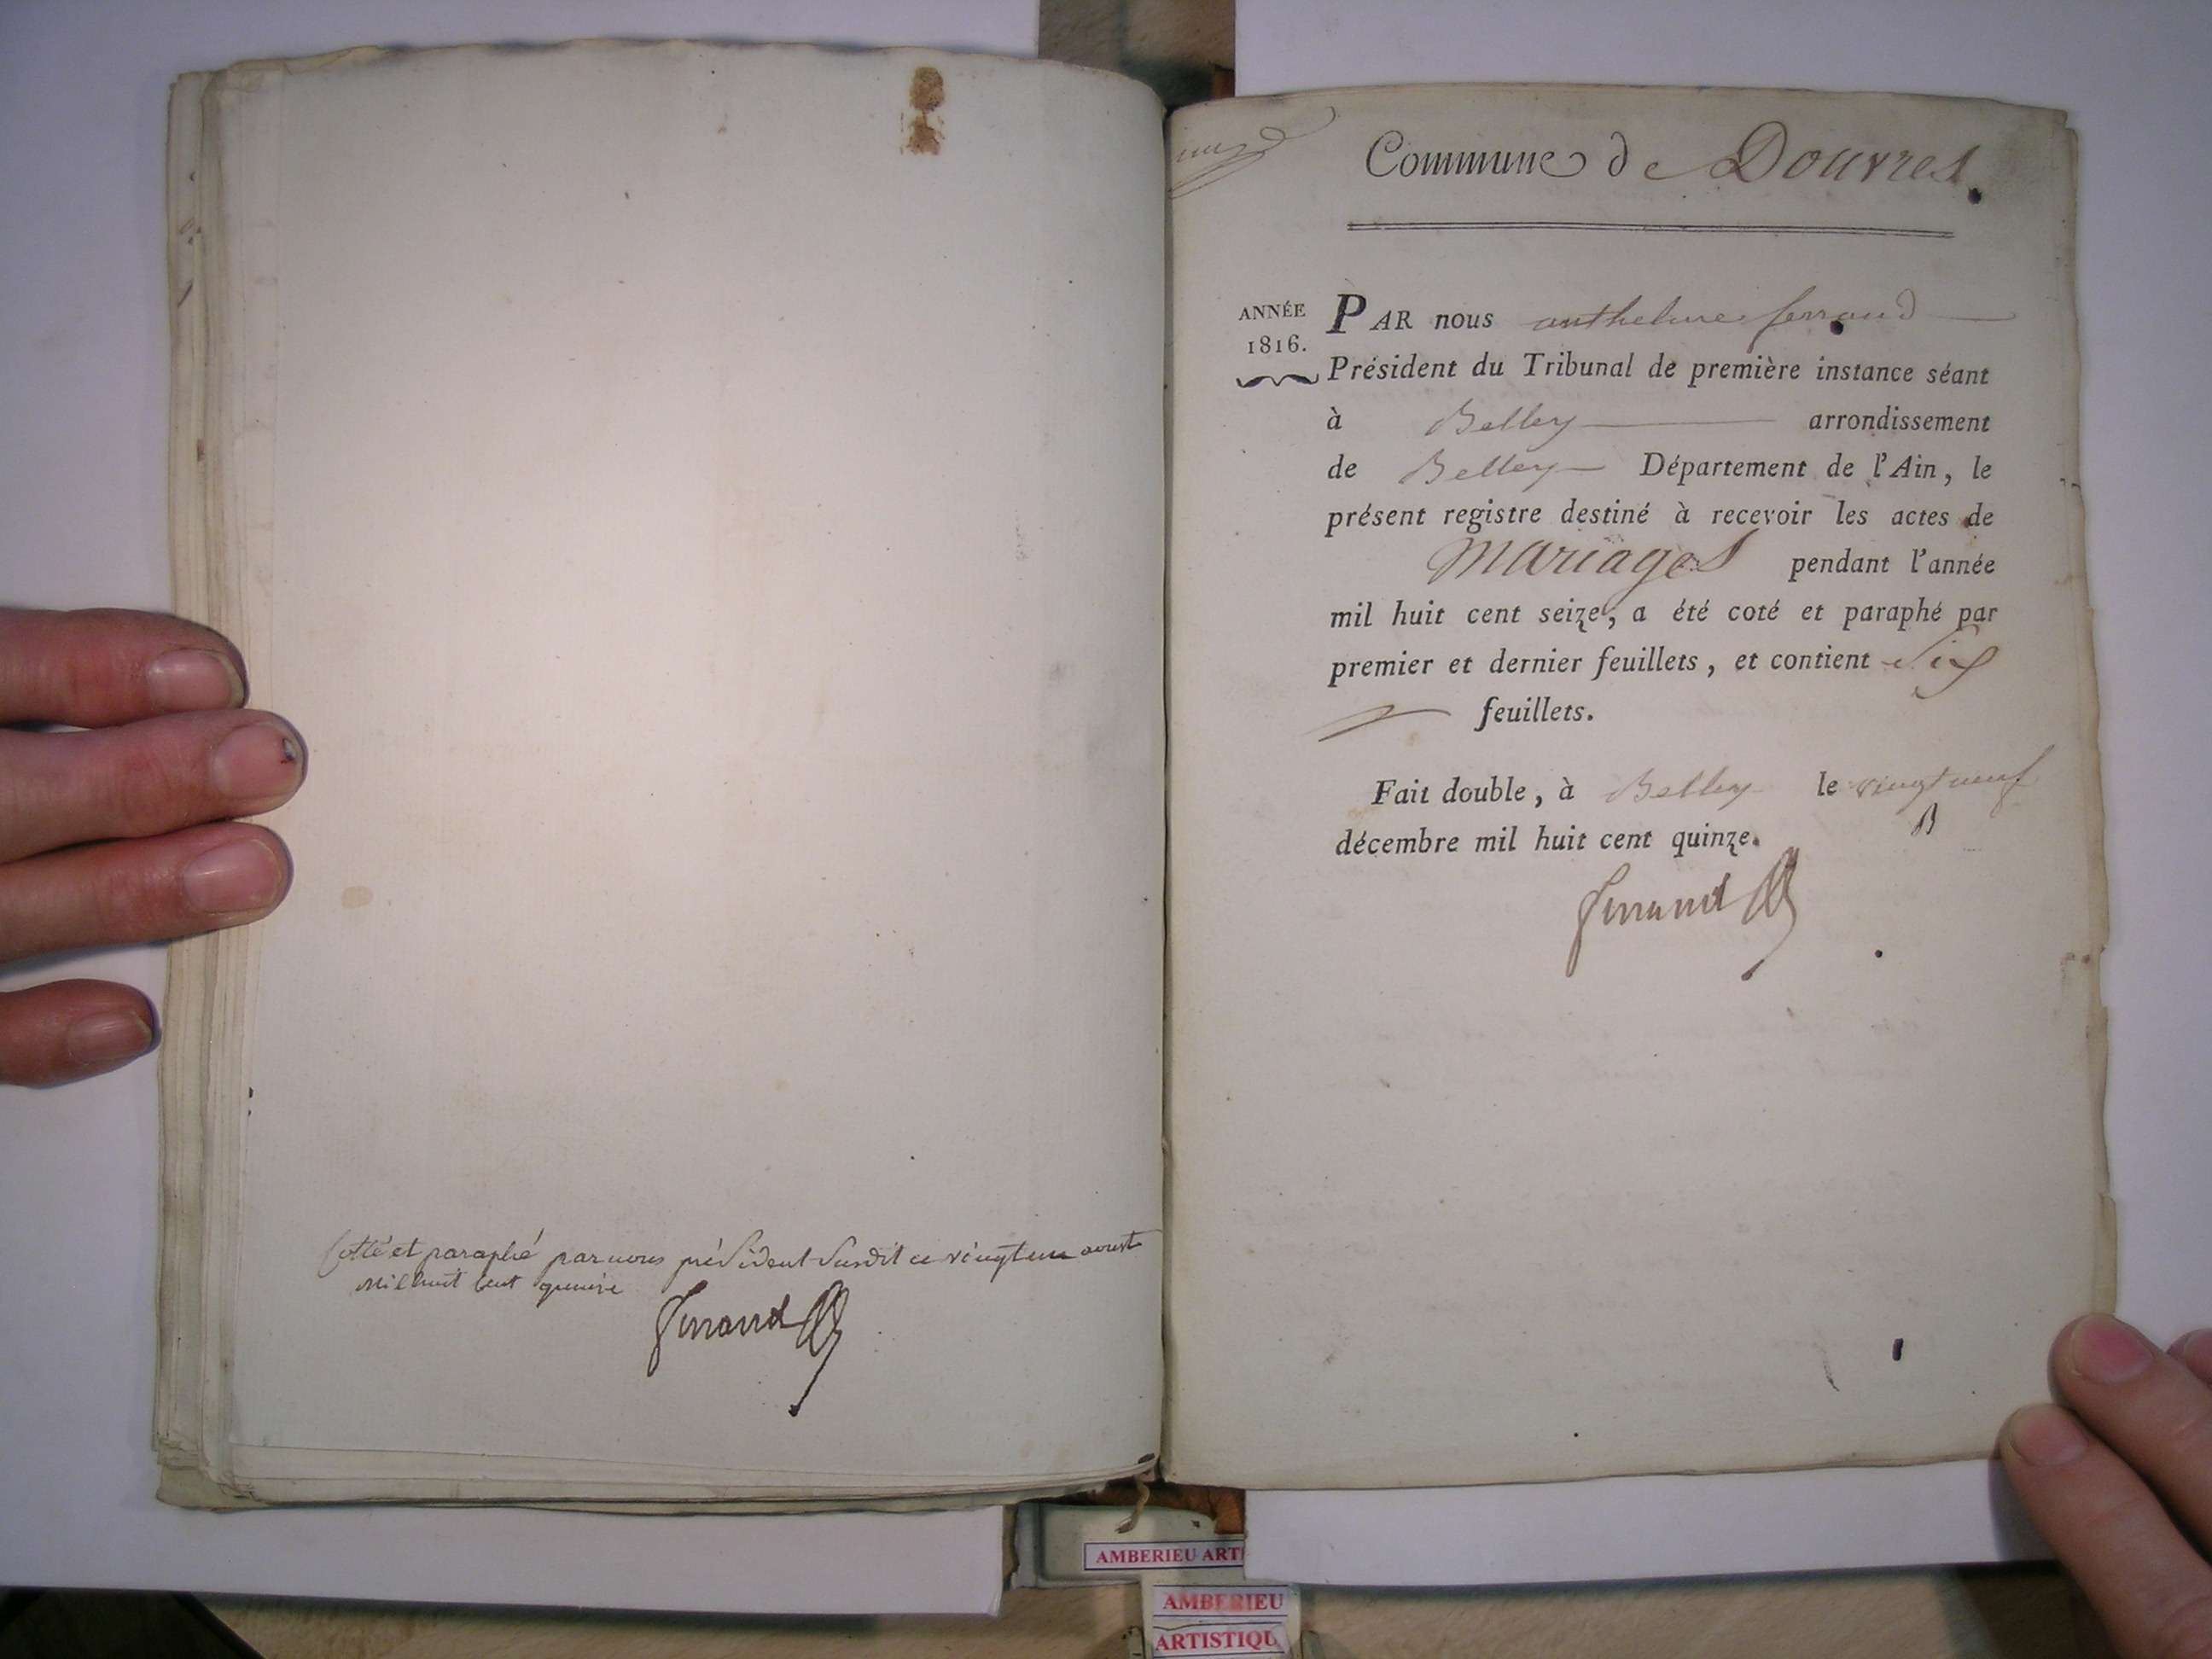 Cotté et paraphé par nous président susdit ce vingt un aoust
mil huit cent quinze
Ferrand
Commune de Douvres.
ANNÉE
1816.
PAR nous anthelme ferrand
Président du Tribunal de première instance séant
à Belley arrondissement
de Belley Département de l'Ain, le
présent registre destiné à recevoir les actes de
Mariages pendant l'année
mil huit cent seize, a été coté et paraphé par
premier et dernier feuillets, et contient Six
feuillets.
Fait double, à Belley le vingt neuf
décembre mil huit cent quinze.
Ferrand
AMBERIEU ARTI
AMBERIEU
ARTISTIQU